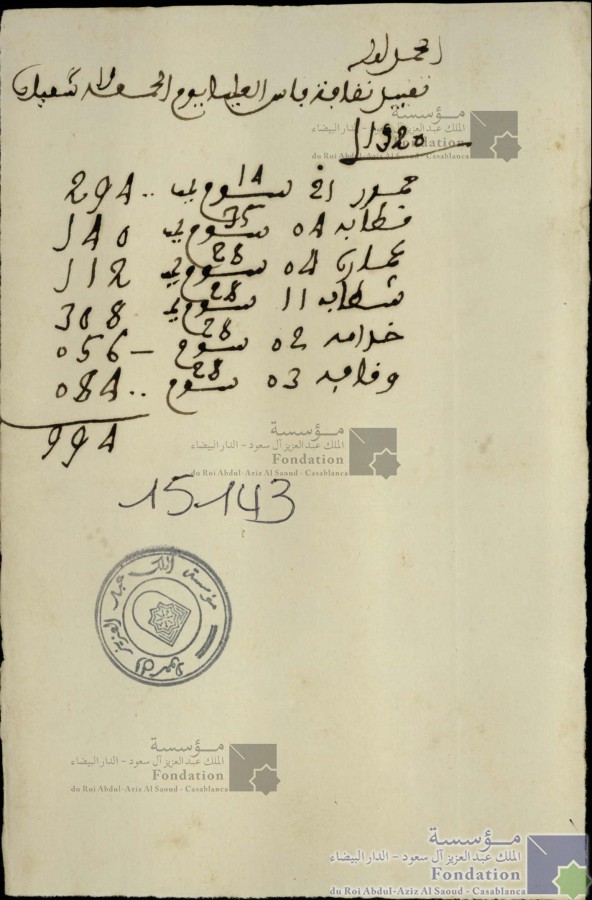 الحمد لله
تقييد نفاذة فاس العليا يوم الجمعة شعبان
1920
21 سوم 14 .. 294
04 سوم 35 140
04 سوم 28 112
11 سوم 28 308
خدامه 02 سوم 28 — 056
وقافه 03 سوم 28 .. 084
994
15143
مؤسسة الملك عبد العزيز آل سعود
مؤسسة
الملك عبدالعزيز آل سعود - الدار البيضاء
Fondation
du Roi Abdul-Aziz Al Saoud - Casablanca
مؤسسة
الملك عبدالعزيز آل سعود - الدار البيضاء
Fondation
du Roi Abdul-Aziz Al Saoud - Casablanca
مؤسسة
الملك عبدالعزيز آل سعود - الدار البيضاء
Fondation
du Roi Abdul-Aziz Al Saoud - Casablanca
مؤسسة
الملك عبدالعزيز آل سعود - الدار البيضاء
Fondation
du Roi Abdul-Aziz Al Saoud - Casablanca